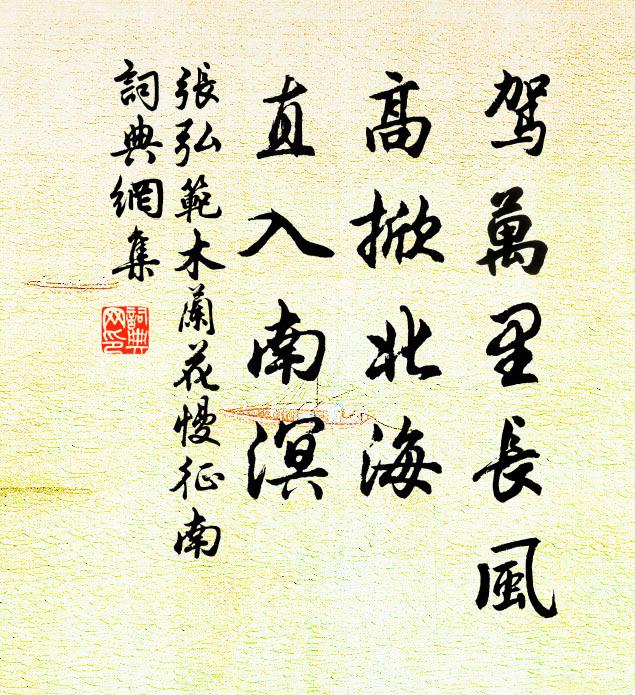 駕萬里長風
高掀北海
直入南溟
張弘範木蘭花慢征南
詞典網集
詞典
网印